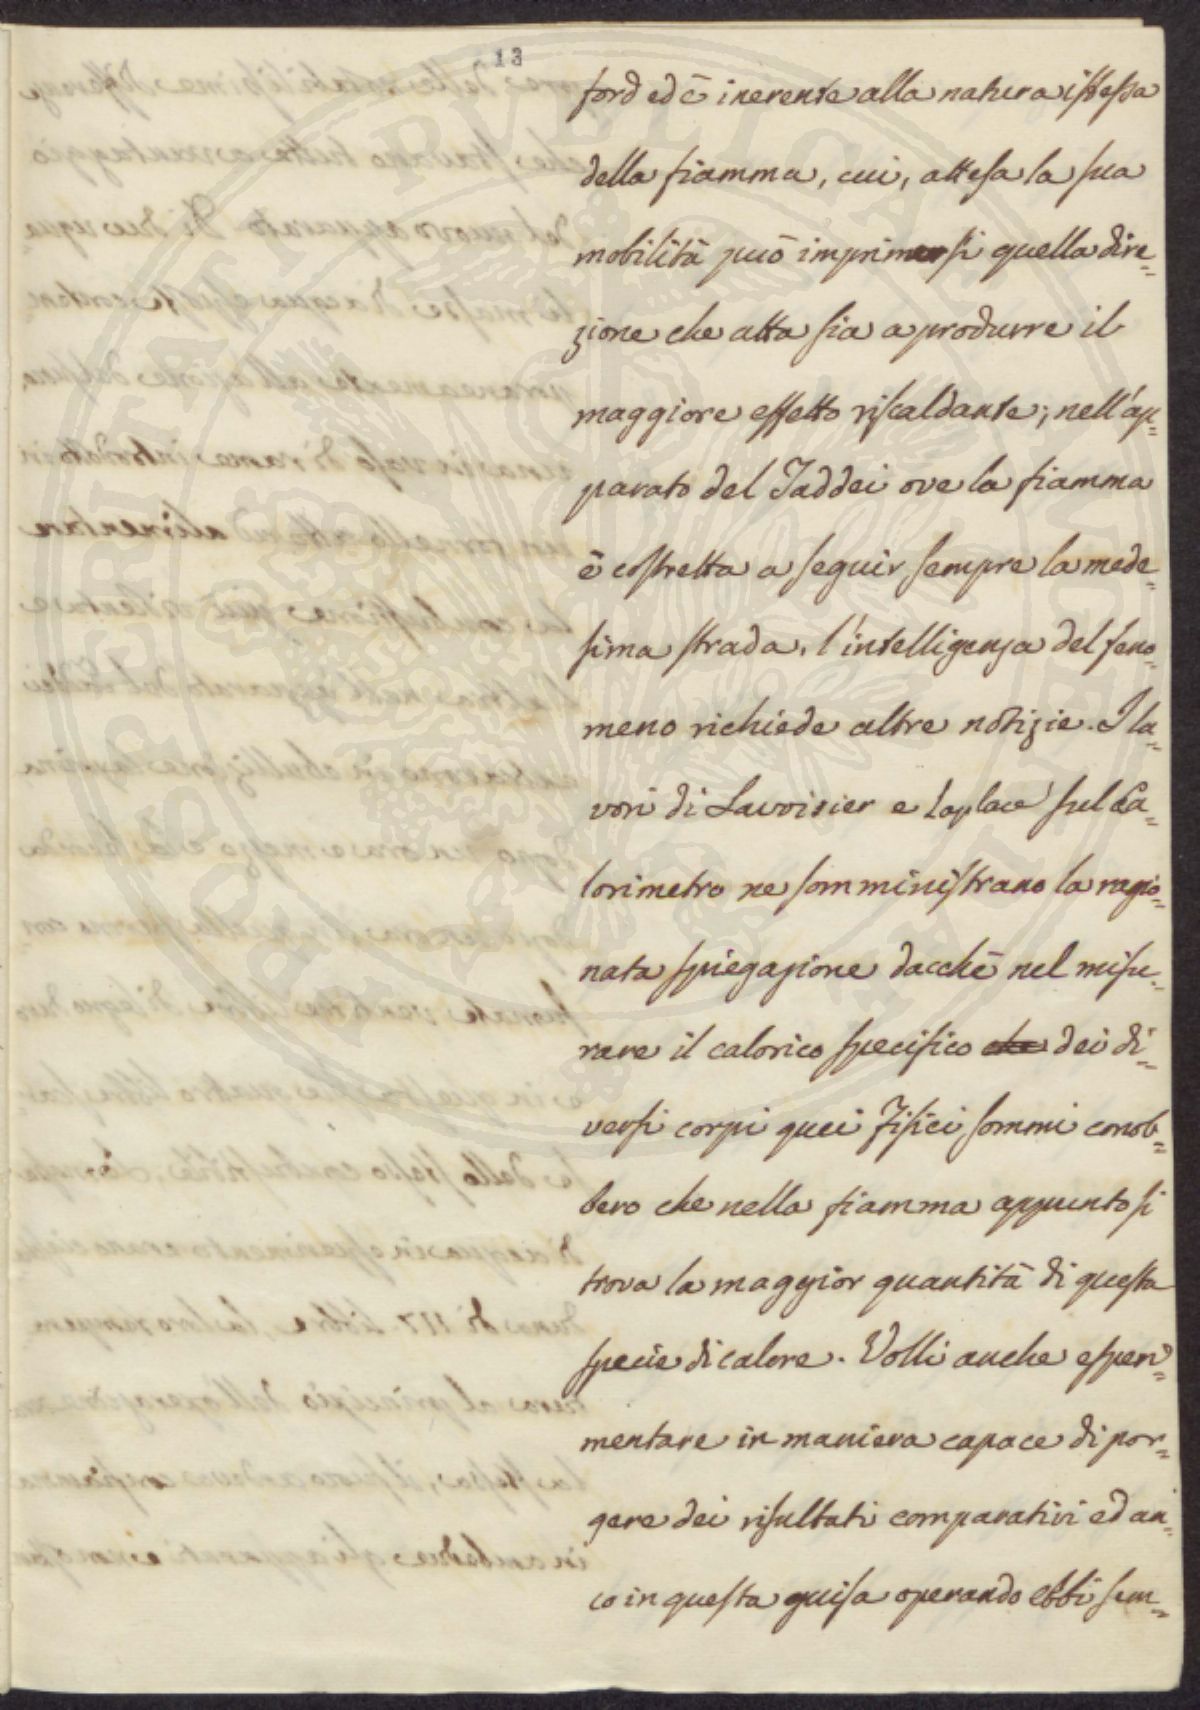 13
ford ed è inerente alla natura istessa
della fiamma, cui, attesa la sua
mobilità può imprimersi quella dire=
zione che atta sia a produrre il
maggiore effetto riscaldante; nell'ap=
parato del Taddei ove la fiamma
è costretta a seguir sempre la mede=
sima strada, l'intelligenza del feno=
meno richiede altre notizie. I la=
vori di Lavoisier e Laplace sul Ca=
lorimetro ne somministrano la ragio=
nata spiegazione dacchè nel misu=
rare il calorico specifico che dei di=
versi corpi quei Fisici sommi conob=
bero che nella fiamma appunto si
trova la maggior quantità di questa
specie di calore. Volli anche esperi=
mentare in maniera capace di por=
gere dei risultati comparativi ed an=
co in questa guisa operando ebbi sem=